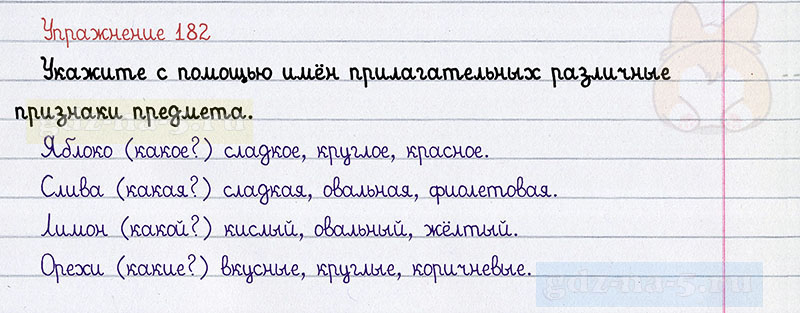 Упражнение 182
Укажите с помощью имён прилагательных различные
признаки предмета.
gdz-na-5.ru
Яблоко (какое?) сладкое, круглое, красное.
Слива (какая?) сладкая, овальная, фиолетовая.
Лимон (какой?) кислый, овальный, жёлтый.
Орехи (какие?) вкусные, круглые, коричневые.
gdz-na-5.ru